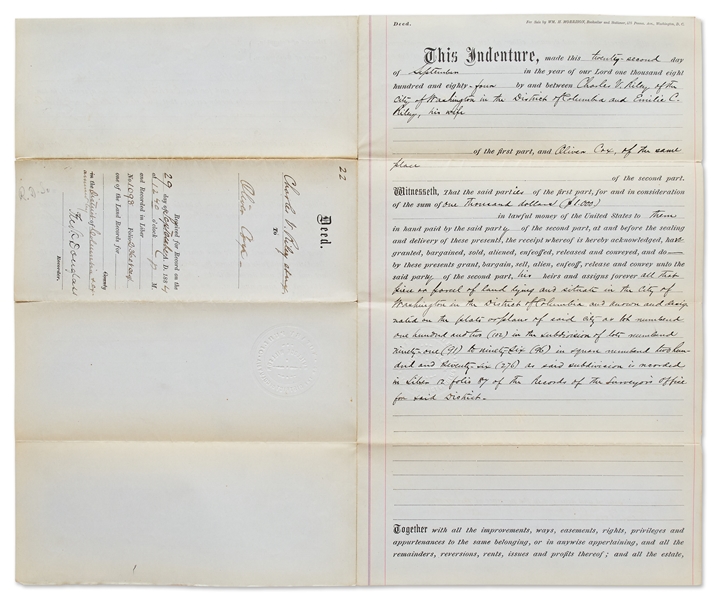 Deed.
For Sale by WM. H. MORRISON, Bookseller and Stationer, 475 Penna. Ave., Washington, D. C.
This Indenture, made this twenty-second day
of September in the year of our Lord one thousand eight
hundred and eighty-four by and between Charles V. Riley of the
City of Washington in the District of Columbia and Emilie C.
Riley, his wife
of the first part, and Oliver Cox, of the same
place
of the second part.
Witnesseth, That the said parties of the first part, for and in consideration
of the sum of one Thousand dollars ($1000)
in lawful money of the United States to them
in hand paid by the said party of the second part, at and before the sealing
and delivery of these presents, the receipt whereof is hereby acknowledged, have
granted, bargained, sold, aliened, enfeoffed, released and conveyed, and do
by these presents grant, bargain, sell, alien, enfeoff, release and convey unto the
said party of the second part, his heirs and assigns forever all that
piece or parcel of land lying and situate in the City of
Washington in the District of Columbia and known and desig
nated on the plats or plans of said city as lot numbered
one hundred and two (102) in the subdivision of lots numbered
ninety-one (91) to ninety-six (96) in square numbered two hun
dred and seventy-six (276) as said subdivision is recorded
in Liber 12 folio 87 of the Records of the Surveyor's Office
for said District.
Together with all the improvements, ways, easements, rights, privileges and
appurtenances to the same belonging, or in anywise appertaining, and all the
remainders, reversions, rents, issues and profits thereof; and all the estate,
22
Deed.
Charles V. Riley
To
Oliver Cox
Received for Record on the
29 day of September A. D. 1884
at 12.40 o'clock P. M.
and Recorded in Liber
No. 1098 Folio
one of the Land Records for
County
in the District of Columbia
Fred. Douglass
Recorder.